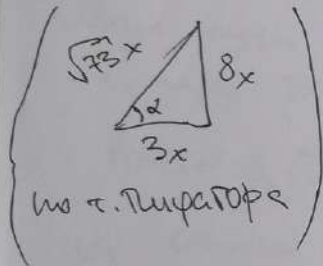 √73 x
8x
α
3x
по т. Пифагора